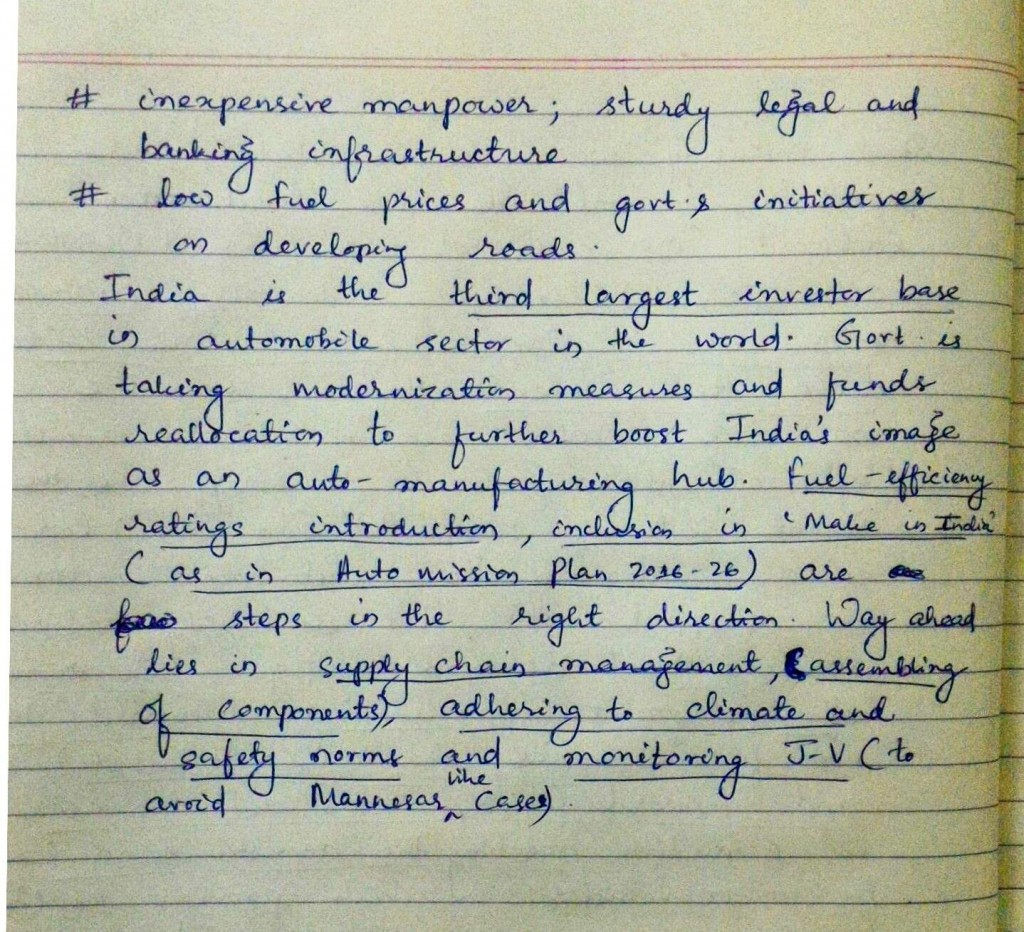 # inexpensive manpower; sturdy legal and
banking infrastructure
# low fuel prices and govt.s initiatives
on developing roads.
India is the third largest investor base
in automobile sector in the world. Govt. is
taking modernization measures and funds
reallocation to further boost India's image
as an auto-manufacturing hub. Fuel-efficiency
ratings introduction, inclusion in 'Make in India'
(as in Auto mission Plan 2016-26) are
steps in the right direction. Way ahead
lies in supply chain management, (assembling
of components), adhering to climate and
safety norms and monitoring J-V (to
avoid Mannesar like cases).